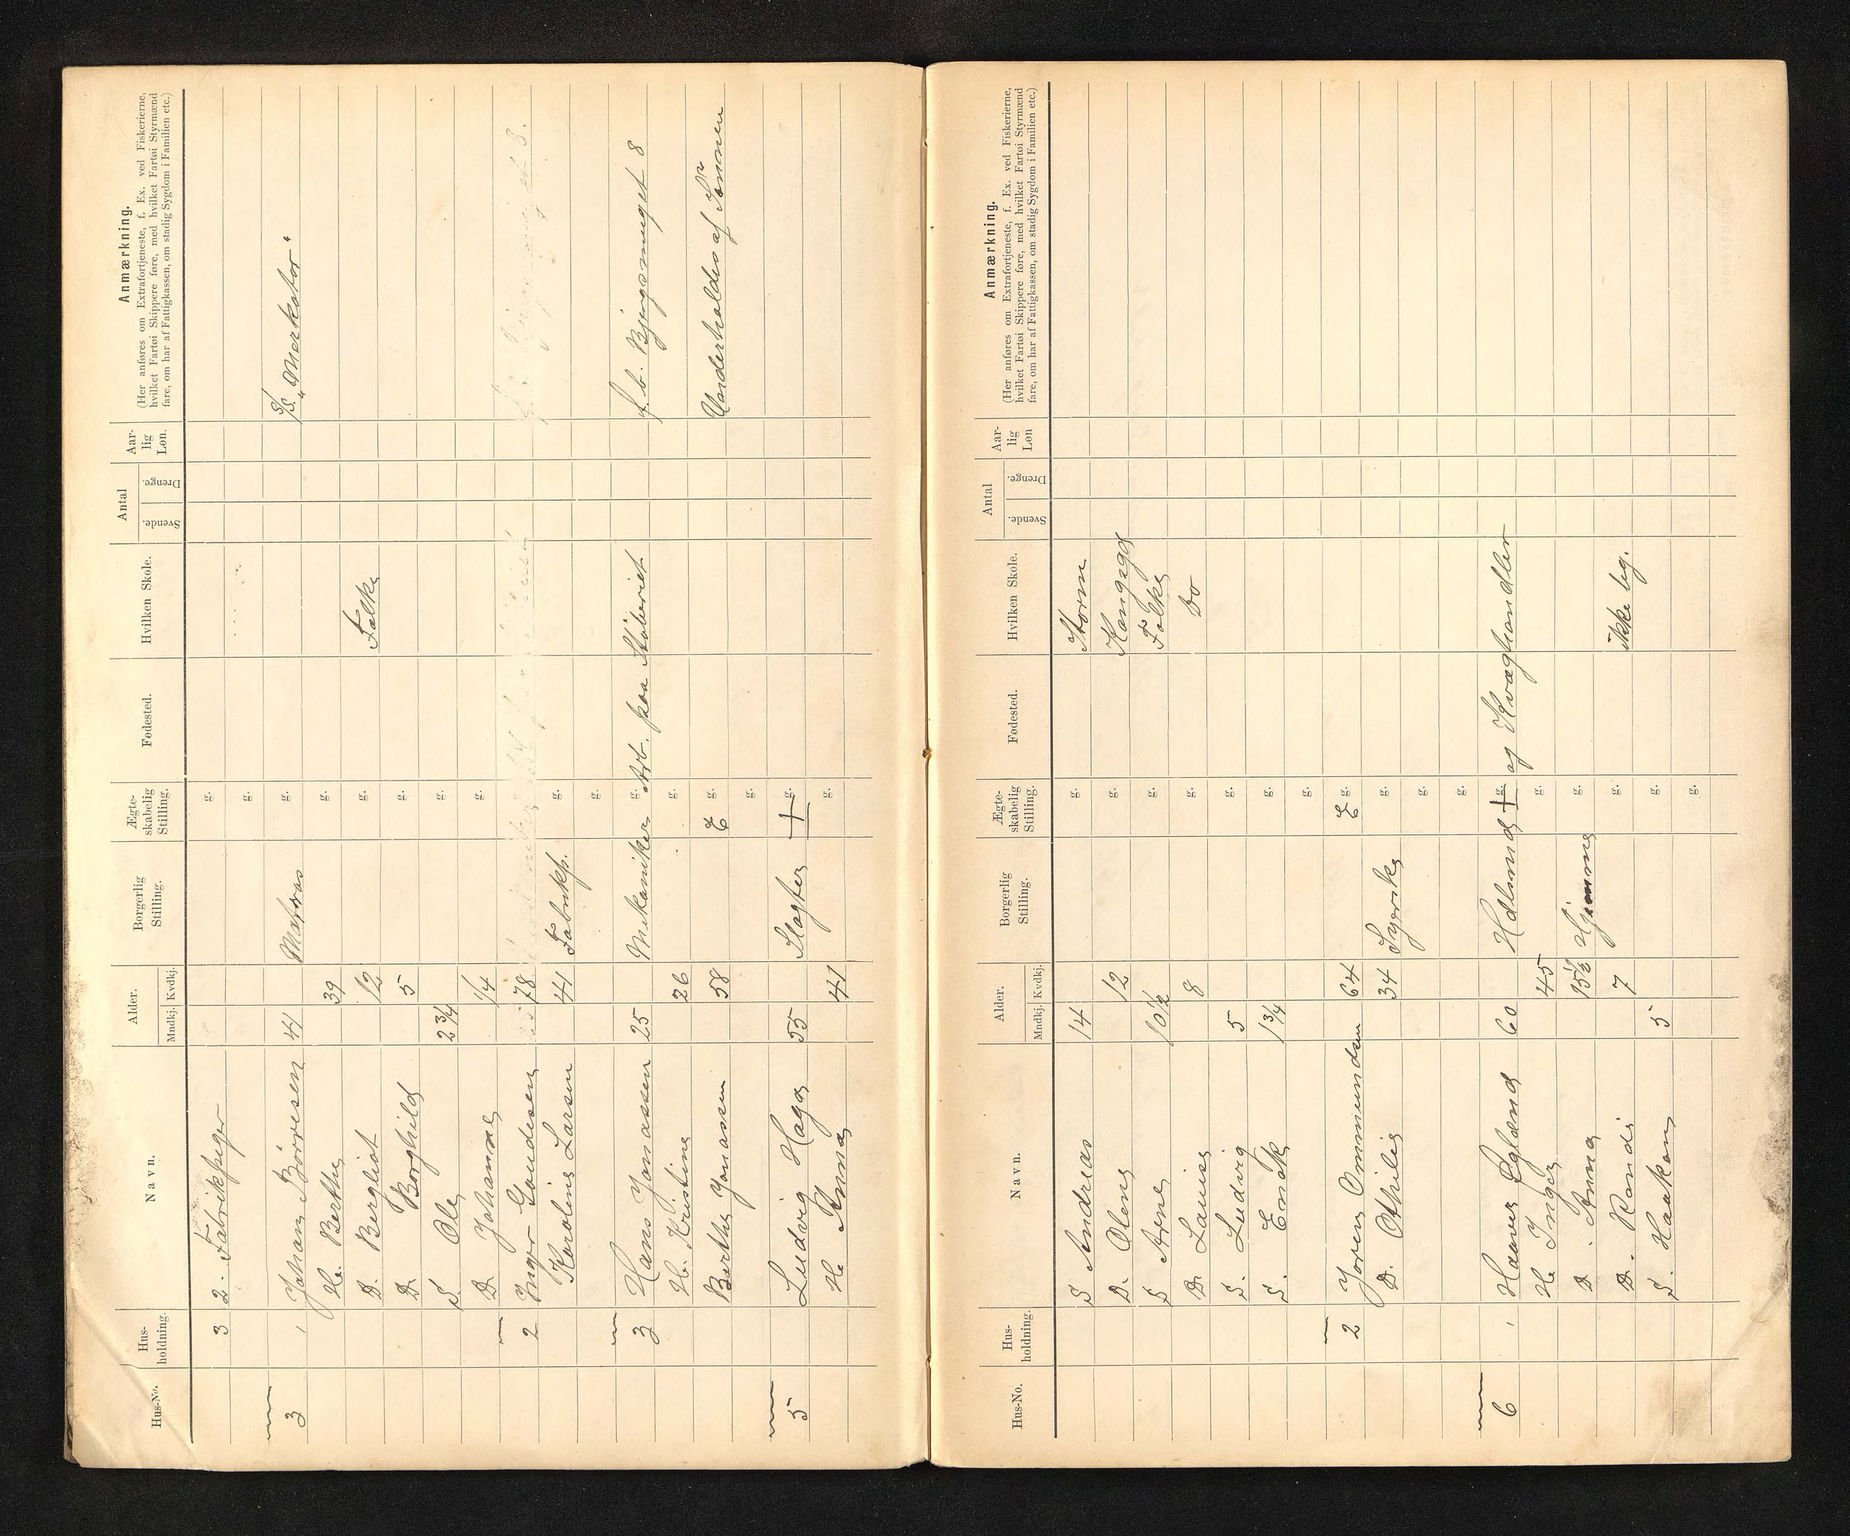 Hus-No. Hus-holdning. Navn. Alder. Mndkj. Kvdkj. Borgerlig Stilling. Ægte-skabelig Stilling. Fødested. Hvilken Skole. Antal Svende. Drenge. Aar-lig Løn. Anmærkning.
(Her anføres om Extrafortjeneste, f. Ex. ved Fiskerierne,
hvilket Fartøi Skippere føre, med hvilket Fartøi Styrmænd
fare, om har af Fattigkassen, om stadig Sygdom i Familien etc.)
3 2. Fabrikpiger g.
g.
3 1 Johan Börresen 41 Matros g. S/S. „Merkator"
H. Berthe 39 g.
D. Bergliot 12 g. Folks
D. Borghild 5 g.
S Ole 2 3/4 g.
D. Johanne 1/4 g.
2 Inger Gaudesen 78
Karoline Larsen 41 Fabrikp.
g.
3 Hans Jonassen 25 Mekaniker g. Arb. paa Støberiet f. b. Bjergsmuget 8
H. Kristine 26 g.
Berthe Jonassen 58 E g. Underholdes af Sönnen
g.
5 Ludvig Haga 55 Slagter + g.
H. Anna 41 g.
Hus-No. Hus-holdning. Navn. Alder. Mndkj. Kvdkj. Borgerlig Stilling. Ægte-skabelig Stilling. Fødested. Hvilken Skole. Antal Svende. Drenge. Aar-lig Løn Anmærkning.
(Her anføres om Extrafortjeneste, f. Ex. ved Fiskerierne,
hvilket Fartøi Skippere føre, med hvilket Fartøi Styrmænd
fare, om har af Fattigkassen, om stadig Sygdom i Familien etc.)
S Andreas 14 g. Storm
D. Olene 12 g. Kongsgd
S Arne 10 1/2 g. Folks
D. Louise 8 g. do
S. Ludvig 5 g.
S. Enok 1 3/4 g.
g.
2 Joren Ommundsen 64 E g.
D. Othilie 34 Syerske g.
g.
g.
6 1 Haaver Egeland 60 Hdlsmnd + g. og Kvæghandler
H Inger 45 g.
D. Anna 15 1/2 Hjemme g.
D. Randi 7 g. ikke beg.
S. Haakon 5 g.
g.